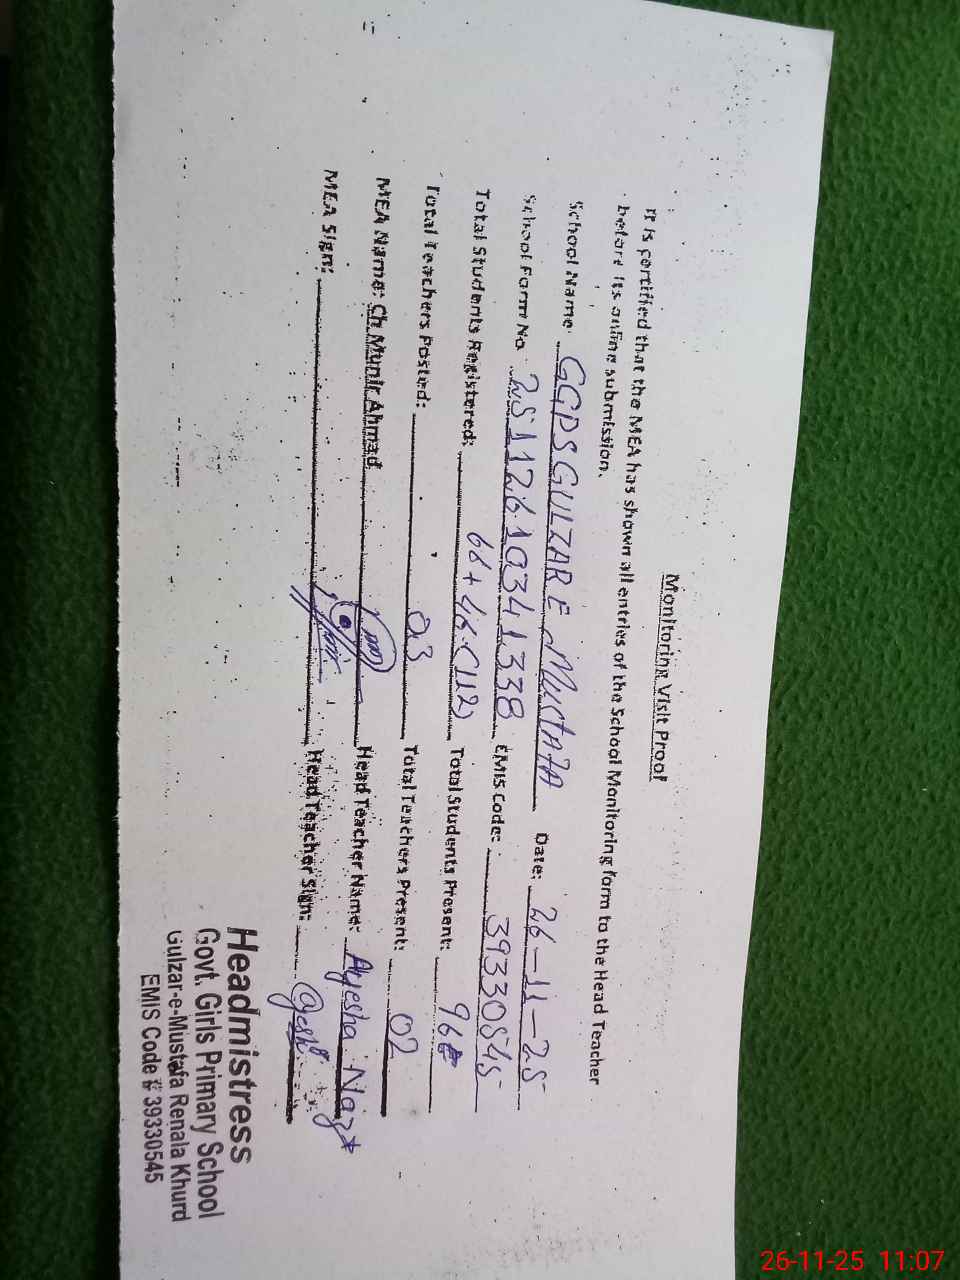 Monitoring Visit Proof
It is certified that the MEA has shown all entries of the School Monitoring form to the Head Teacher
before its online submission.
School Name: GGPS GULZAR E MUSTAFA Date: 26-11-25
School Form No. 25112610341338 EMIS Code: 39330545
Total Students Registered: 66+46=(112) Total Students Present: 96
Total Teachers Posted: 03 Total Teachers Present: 02
MEA Name: Ch Munir Ahmad Head Teacher Name: Ayesha Naz
MEA Sign: Head Teacher Sign: Ayesha
Headmistress
Govt. Girls Primary School
Gulzar-e-Mustafa Renala Khurd
EMIS Code # 39330545
26-11-25 11:07